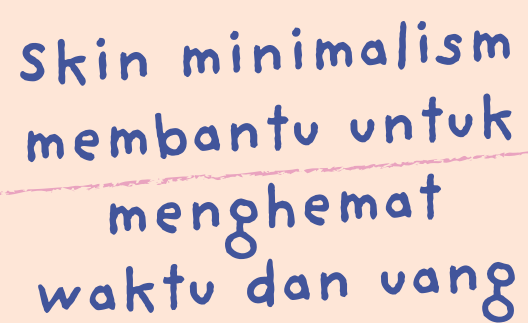 Skin minimalism
membantu untuk
menghemat
waktu dan uang